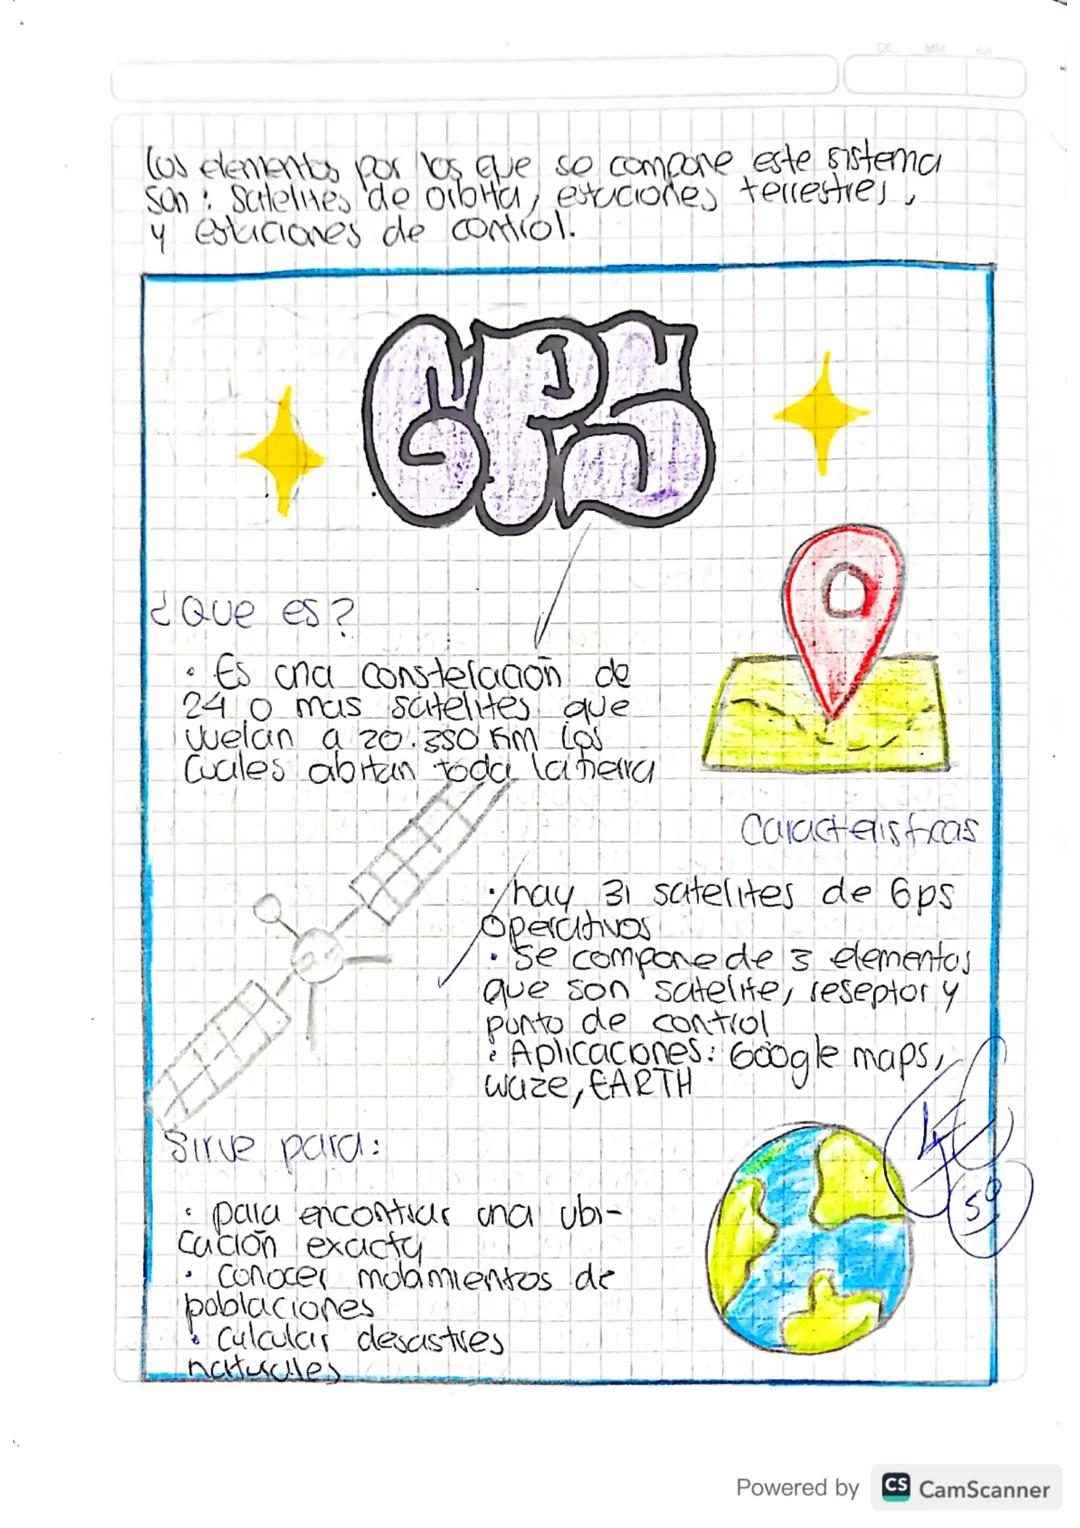 DC MM AA
Los elementos por los que se compone este sistema
son: Satelites de orbita, estaciones terrestres,
y estaciones de control.
GPS
¿Que es?
• Es una constelación de
24 o mas satelites que
vuelan a 20.350 Km los
cuales abitan toda la tierra
Caracteristicas
• hay 31 satelites de Gps
Operativos
• Se compone de 3 elementos
que son satelite, reseptor y
punto de control
• Aplicaciones: Google maps,
waze, EARTH
Sirve para:
• para encontrar una ubi-
cación exacta
• conocer mobimientos de
poblaciones
• calcular desastres
naturales
50
Powered by CS CamScanner